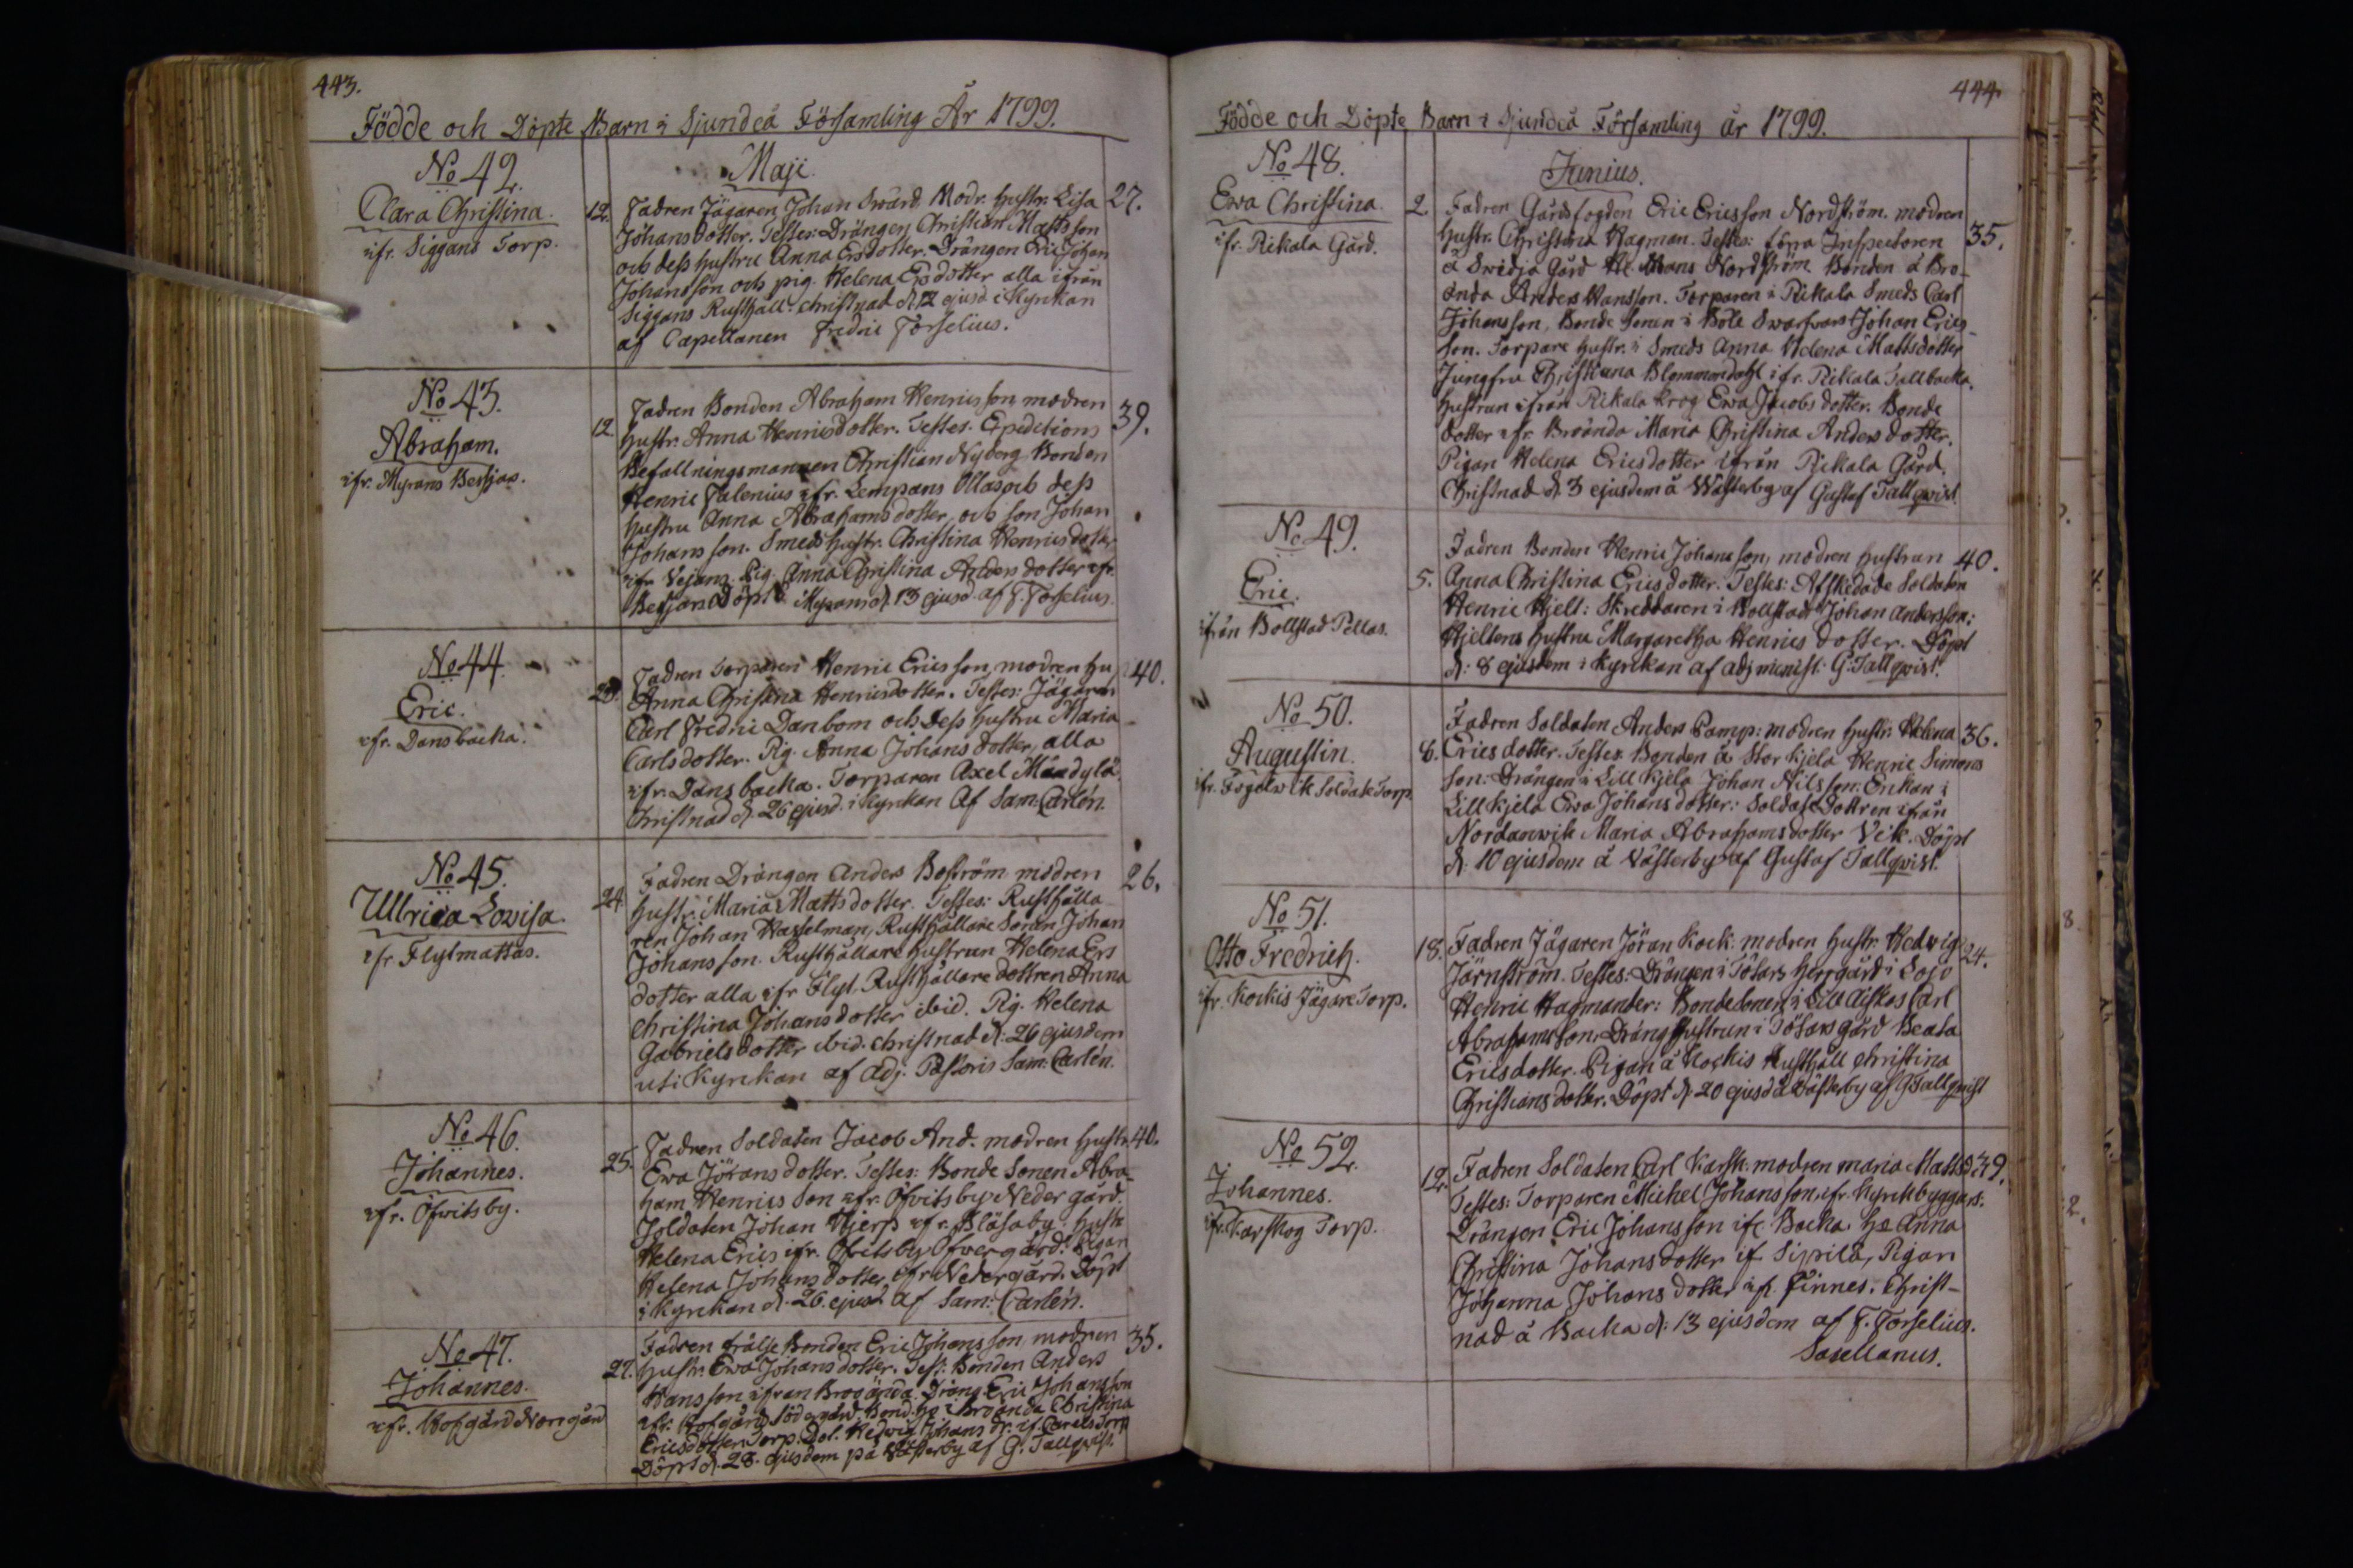 443.
Födde och Döpte Barn i Sjundeå Församling År 1799.
Maji.
No 42.
Clara Christina.
ifr. Siggans Torp.
12.
Fadren Jägaren Johan Swärd. Modr. hustr. Lisa
27.
Johansdotter. Testes: Drängen Christian Mattsson
och dess hustru Anna Ersdotter. Drängen Eric Johan
Johansson och pig. Helena Ersdotter alla ifrån
Siggans Rusthåll. christnad d. 12 ejusd i Kyrkan
af Capellanen Fredric Forselius.
No 43.
Abraham.
ifr. Myrans
12
Fadren Bonden Abraham Henricsson modren
39.
hustr. Anna Henricsdotter. Testes. Expeditions
Befallningsmannen Christian Nyberg Bonden
Henric Falenius ifr. Lempans Ollas och dess
hustru Anna Abrahamsdotter, och son Johan
Johansson. Smeds hustr. Christina Henricsdotter
ifr. Vejans. Pig. Anna Christina Andersdotter ifr.
Döpt i Myrans d. 13 ejusd. af F. Forselius.
No 44.
Eric.
ifr. Dansbacka.
23.
Fadren Torparen Henric Ericsson, modren hu
40.
Anna Christina Henricsdotter. Testes: Jägaren
Carl Fredric Danbom och dess hustru Maria
Carlsdotter. Pig. Anna Johansdotter, alla
ifr. Dansbacka. Torparen Axel
Christnad d. 26 ejusd. i Kyrkan af Sam. Carlén.
No 45.
Ullrica Lovisa.
ifr Flytmattas.
24.
Fadren Drängen Anders Boström modren
26.
hustr. Maria Mattsdotter. Testes: Rusthålla
ren Johan Hasselman, Rusthållare Sonen Johan
Johansson. Rusthållare hustrun Helena Ers
dotter alla ifr Flyt. Rusthållare dottren Anna
Christina Johansdotter ibid. Pig. Helena
Gabrielsdotter ibid. christnad d. 26 ejusdem
uti Kyrkan af Adj. Pastoris Sam. Carlén.
No 46.
Johannes.
ifr. Öfvitsby.
25.
Fadren Soldaten Jacob And. modren hustr.
40.
Ewa Jöransdotter. Testes: Bonde Sonen Abra-
ham Henricsson ifr. Öfvitsby Nedergård.
Soldaten Johan Hjerp ifr. Bläsaby. hustr
Helena Erics ifr. Öfvitsby Öfvergård. Pigan
Helena Johansdotter ifr Nedergård. Döpt
i Kyrkan d. 26 ejusd af Sam: Carlén.
No 47.
Johannes.
ifr. Hofgård Norrgård
27.
Fadren frälse Bonden Eric Johansson modren
35.
hustr. Ewa Johansdotter. Test: Bonden Anders
Hansson ifrån Broända. Dräng Eric Johansson
ifr. Hofgård Södergård Bond. hu i Broända Christina
Ericsdotter. Torp. Dot. Hedvig Johans dr. if.
Döpt d. 28. ejusdem på Wästerby af G. Tallqvist.
444.
Födde och Döpte Barn i Sjundeå Församling år 1799.
Junius.
No 48.
Ewa Christina.
ifr. Pikala Gård.
2.
Fadren Gårdsfogden Eric Ericsson Nordström. modren
hustr. Christina Hagman. Testes: förra Inspectoren
35.
å Svidja Gård Hr. Mans Nordström Bonden å Bro-
ända Anders Hansson. Torparen i Pikala Smeds Carl
Johansson, Bonde Sonen i Böle Swarfvars Johan Erics-
son. Torpare hustr. i Smeds Anna Helena Mattsdotter
Jungfru Christiana Blommendahl ifr. Pikala Tallbacka.
hustrun ifrån Pikala krog Ewa Jacobsdotter. Bonde
dotter ifr. Broända Maria Christina Andersdotter.
Pigan Helena Ericsdotter ifrån Pikala Gård.
Christnad d. 3 ejusdem å Wästerby af Gustaf Tallqvist.
No 49.
Eric.
ifrån Bollstad Pellas.
5.
Fadren Bonden Henric Johansson, modren hustrun
40.
Anna Christina Ericsdotter. Testes: Afskedade Soldaten
Henric Hjelt: Skreddaren i Bollstad Johan Andersson:
Hjeltens hustru Margaretha Henricsdotter. Döpt
d: 8 ejusdem i Kyrkan af adj minist: G. Tallqvist.
No 50.
Augustin.
ifr. Fogelvik Soldate Torp
8.
Fadren Soldaten Anders Pamp: modren hustr. Helena
36.
Ericsdotter. Testes Bonden å Stor Kjela Henric Simons
son: Drängen i Lill Kjela Johan Nilsson: Enkan i
Lill Kjela Ewa Johansdotter: Soldate Dottren ifrån
Nordanvik Maria Abrahamsdotter Vik. Döpt
d. 10 ejusdem å Västerby af Gustaf Tallqvist.
No 51.
Otto Fredrich.
ifr. Kockis Jägare Torp.
18.
Fadren Jägaren Jöran Kock: modren hustr. Hedvig
24.
Järnström. Testes: Drängen i Tötars herrgård i Lojo
Henric Hagmander: Bondesonen i Lill Aiskos Carl
Abrahamsson, Dräng hustrun i Tötars gård Beata
Ericsdotter. Pigan å Kockis Rusthåll Christina
Christiansdotter. Döpt d. 20 ejusd å Wästerby af G Tallqvist
No 52.
Johannes.
ifr. Karskog Torp.
12.
Fadren Soldaten Carl Karsk: modren Maria Mattsd
39.
Testes: Torparen Michel Johansson, ifr. Kyrckbyggars.
Drängen Eric Johansson ifr Backa. hu Anna
Christina Johansdotter if. Sipilä, Pigan
Johanna Johansdotter if. Finnes. Christ-
nad å Backa d: 13 ejusdem af F. Forselius.
Sacellanus.